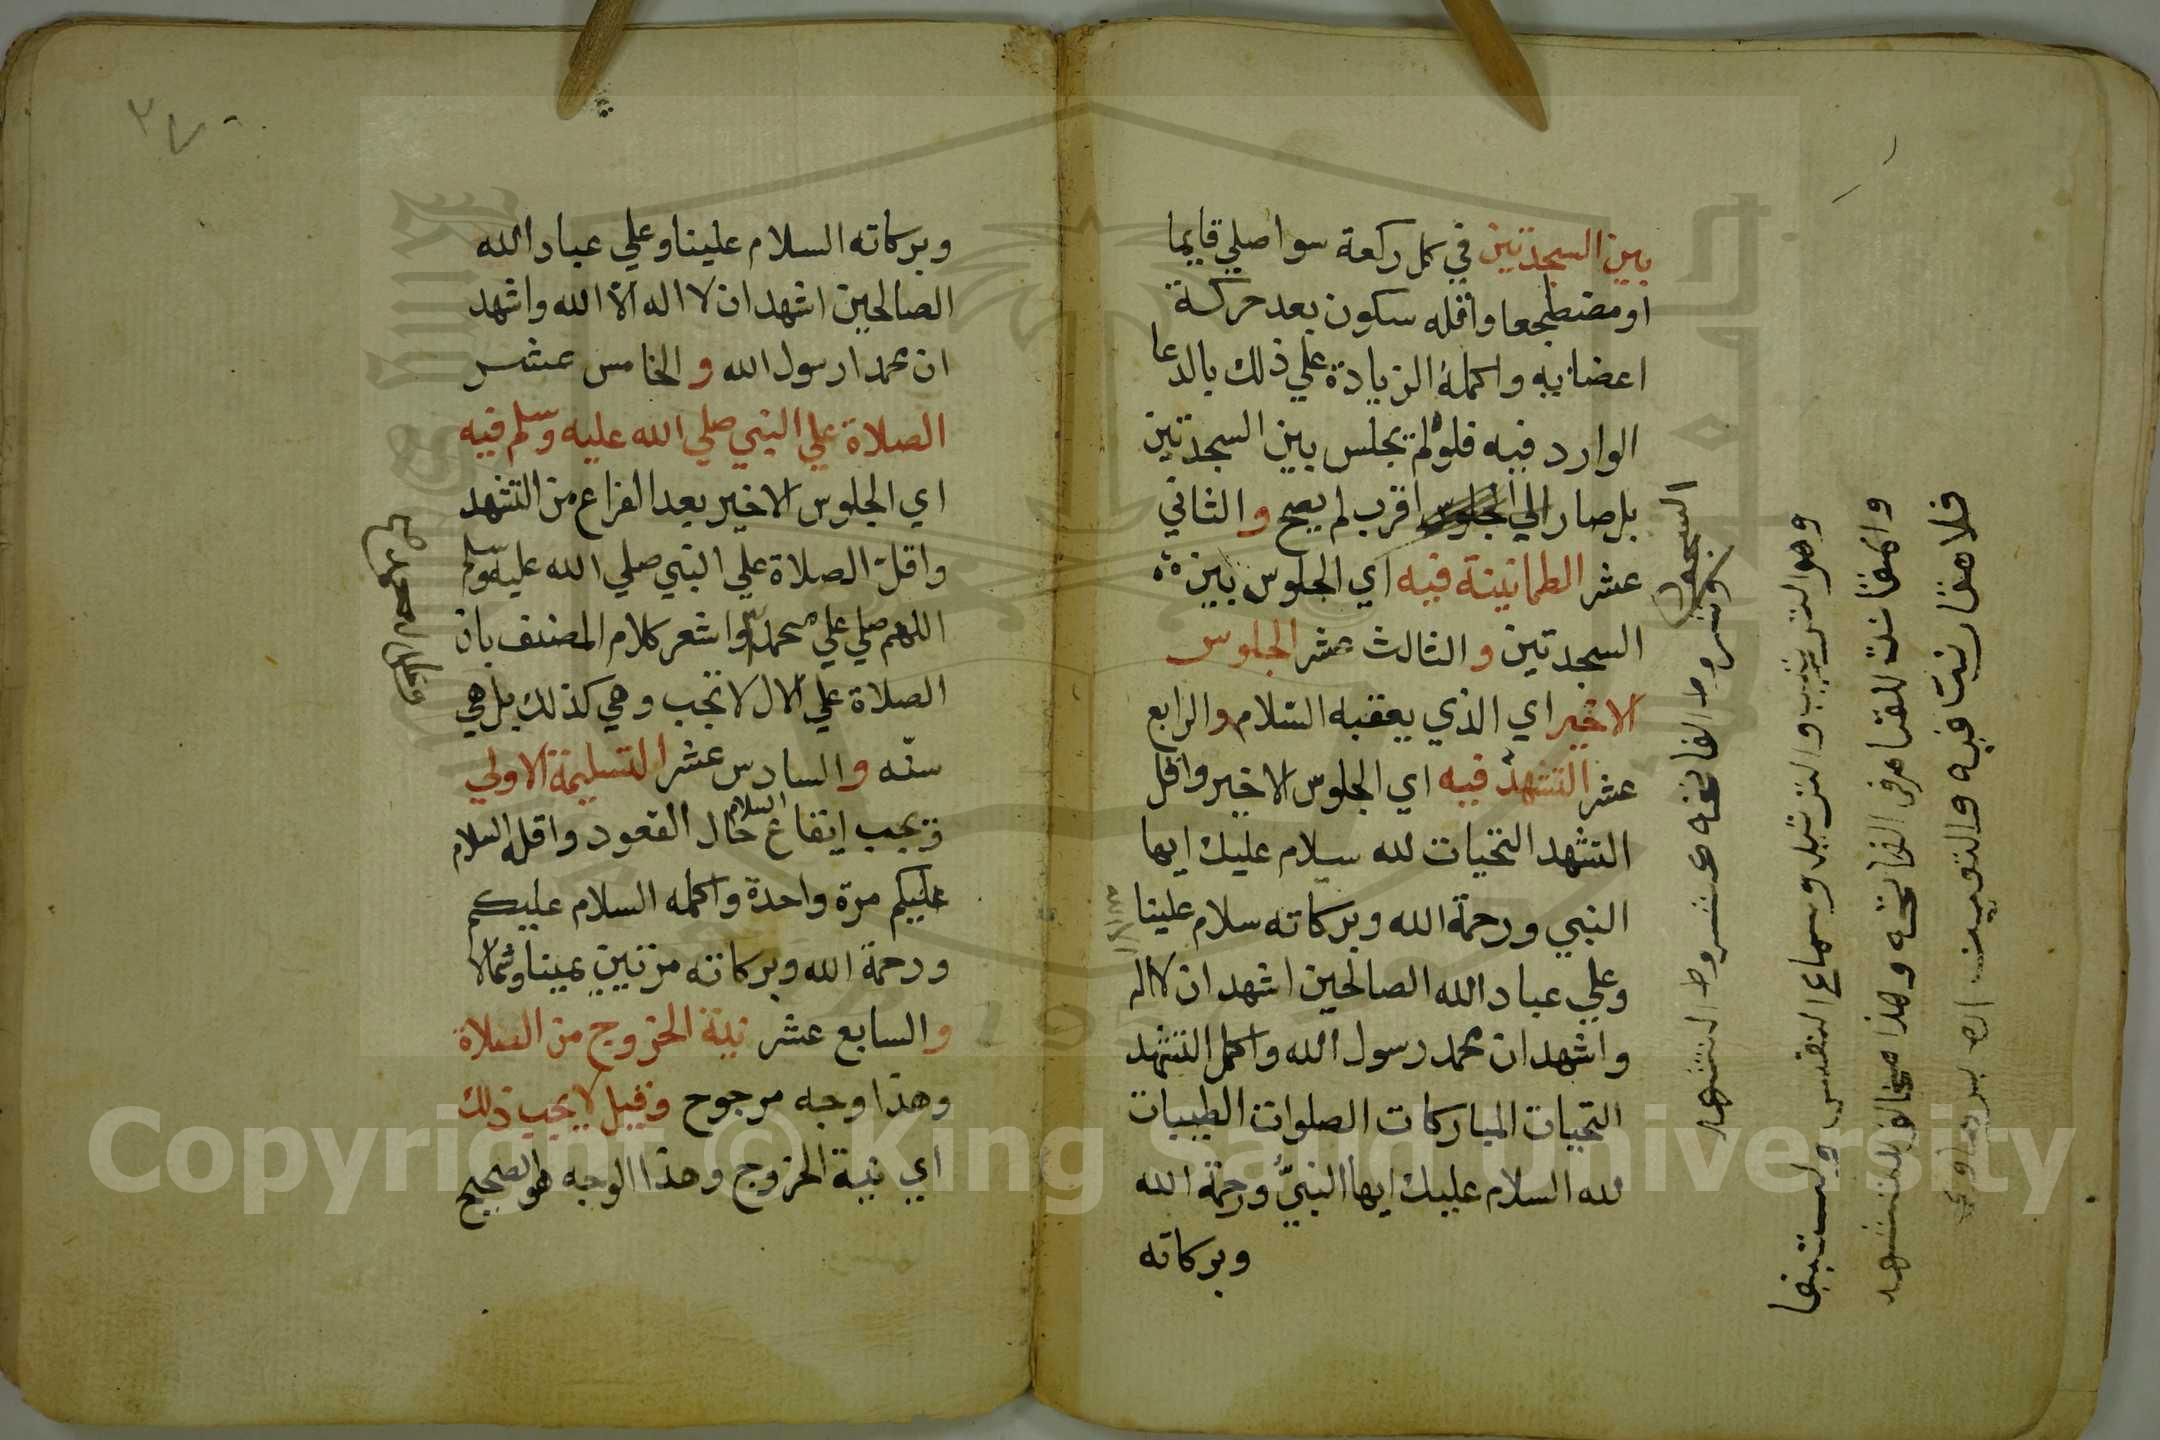 بين السجدتين في كل ركعة سوا صلي قايما
او مضطجعا واقله سكون بعد حركة
اعضايه واكمله الزيادة علي ذلك بالدعا
الوارد فيه فلو لم يجلس بين السجدتين
بل صار الي الجلوس اقرب لم يصح والثاني
عشر الطمانينة فيه اي الجلوس بين
السجدتين والثالث عشر الجلوس
الاخير اي الذي يعقبه السلام والرابع
عشر التشهد فيه اي الجلوس الاخير واقل
التشهد التحيات لله سلام عليك ايها
النبي ورحمة الله وبركاته سلام علينا
وعلي عباد الله الصالحين اشهد ان لا اله
واشهد ان محمد رسول الله واكمل التشهد
التحيات المباركات الصلوات الطيبات
لله السلام عليك ايها النبي ورحمة الله
وبركاته
السجود
وشروط الفاتحه عشروط التشهد
وهو الترتيب والترتيل وسماع النفس وليستبفا
فلا هفارنت فيه والتومين
وبركاته السلام علينا وعلي عباد الله
الصالحين اشهد ان لا اله الا الله واشهد
ان محمدا رسول الله والخامس عشر
الصلاة علي النبي صلي الله عليه وسلم فيه
اي الجلوس الاخير بعد الفراغ من التشهد
واقل الصلاة علي النبي صلي الله عليه وسلم
اللهم صلي علي محمد واشعر كلام المصنف بان
الصلاة علي الال لا تجب وهي كذلك بل هي
سنه والسادس عشر التسليمة الاولي
ويجب ايقاع السلام حال القعود واقله السلام
عليكم مرة واحدة واكمله السلام عليكم
ورحمة الله وبركاته مرتين يمينا وشمالا
والسابع عشر نية الخروج من الصلاة
وهذا وجه مرجوح وقيل لا يجب ذلك
اي نية الخروج وهذا الوجه هو الصحيح
Copyright © King Saud University